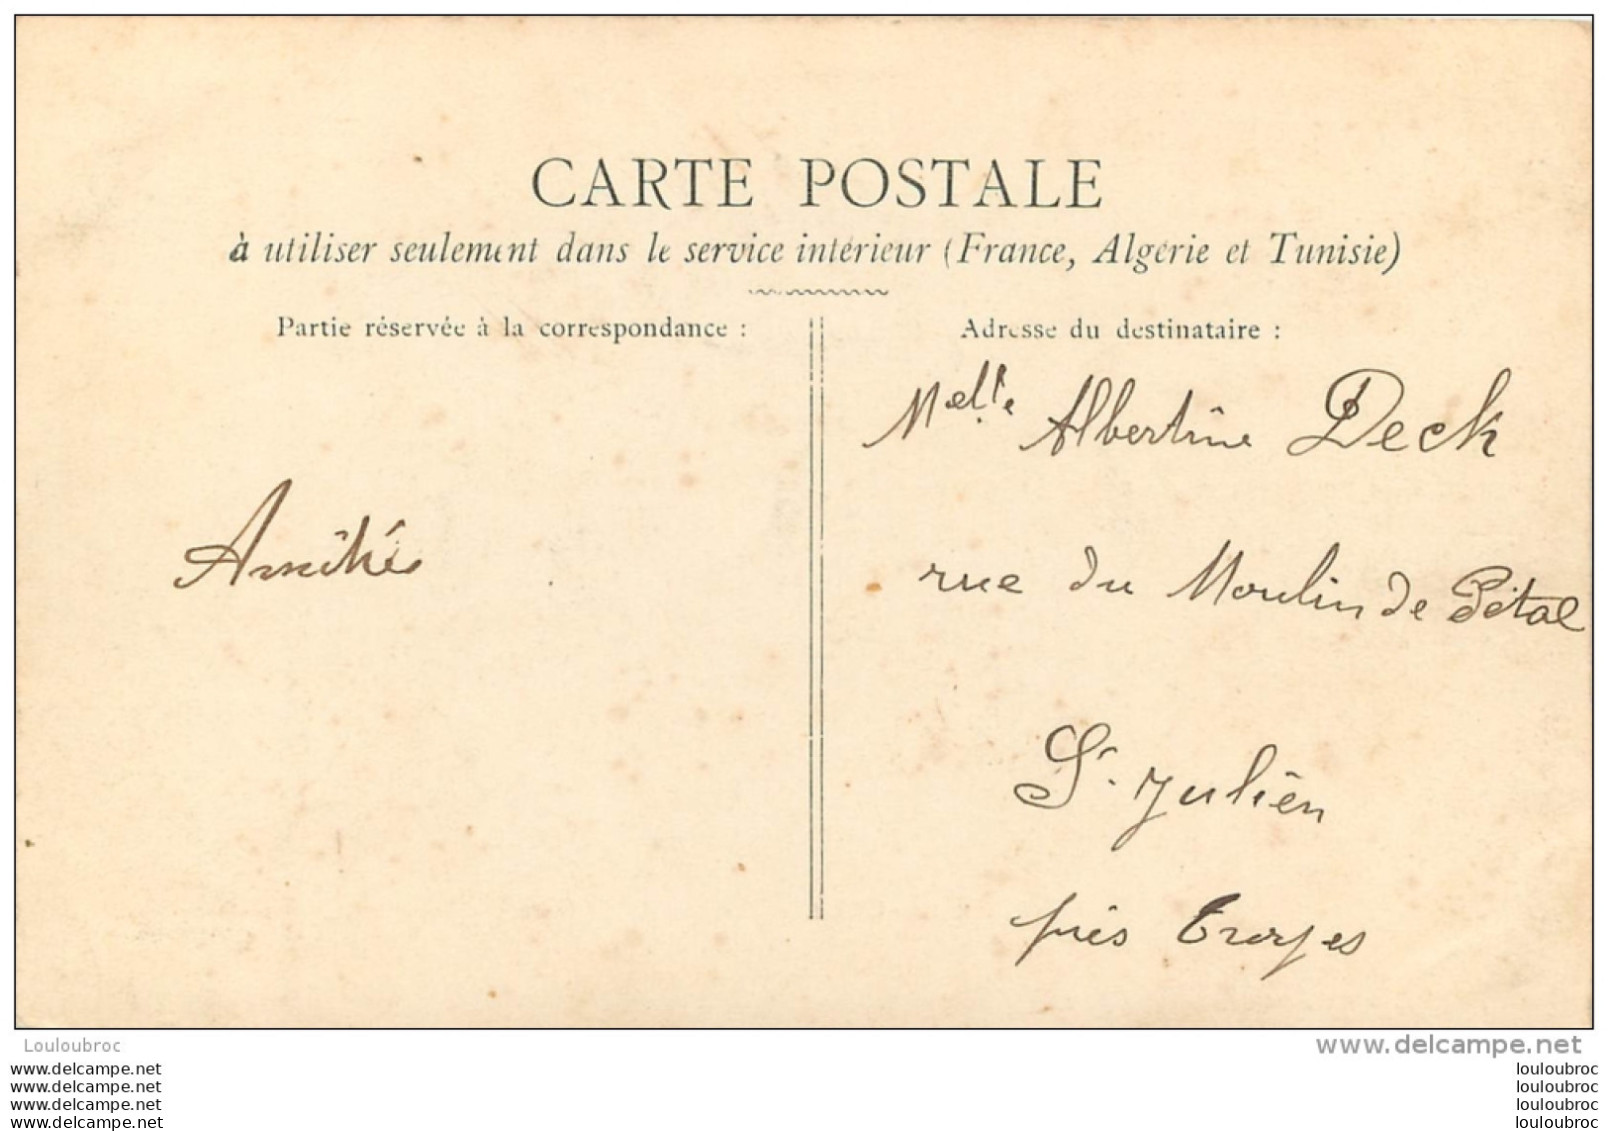 CARTE POSTALE
à utiliser seulement dans le service intérieur (France, Algérie et Tunisie)
Partie réservée à la correspondance :
Amitiés
Adresse du destinataire :
Melle Albertine Deck
rue du Moulin de Pétal
St Julien
près Troyes
Louloubroc
www.delcampe.net
www.delcampe.net
www.delcampe.net
www.delcampe.net
©www.delcampe.net
louloubroc
louloubroc
louloubroc
louloubroc